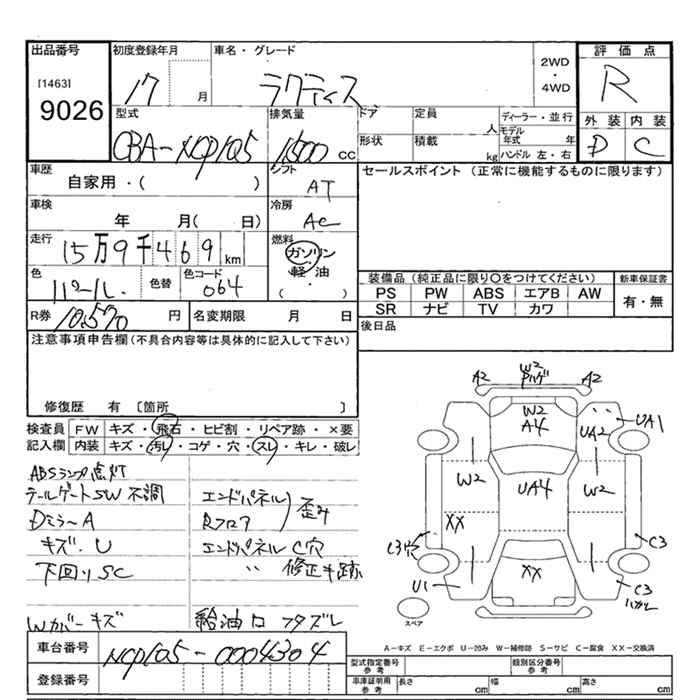 出品番号
[1463]
9026
初度登録年月
17 月
車名・グレード
ラクティス
2WD
・
4WD
評価点
R
外装 内装
D C
型式
CBA-NCP105
排気量
1,500 cc
ドア
定員
人
ディーラー・並行
モデル年式 年
形状
積載
kg
ハンドル 左・右
車歴
自家用・( )
シフト
AT
セールスポイント (正常に機能するものに限ります)
車検
年 月( 日)
冷房
AC
走行
15万9千469km
燃料
ガソリン
・
軽・油
( )
色
パール
色替
色コード
064
装備品 (純正品に限り〇をつけてください)
新車保証書
PS PW ABS エアB AW
有・無
SR ナビ TV カワ
R券 10,570 円
名変期限 月 日
後日品
注意事項申告欄(不具合内容等は具体的に記入して下さい)
修復歴 有 〔箇所 〕
検査員 FW キズ・飛石・ヒビ割・リペア跡・×要
記入欄 内装 キズ・汚レ・コゲ・穴・スレ・キレ・破レ
ABSランプ点灯
テールゲートSW不調
Dミラー A
キズ・U
下回りSC
Wカバーキズ
エンドパネル
Rフロア
歪み
エンドパネル C穴
〃 修正キ跡
給油口フタズレ
A2 W2 ハゲ A2
W2
A4
UA2
UA1
W2
UA4
W2
XX
C3穴
C3
XX
U1
C3
ハガレ
スペア
A-キズ E-エクボ U-凹み W-補修跡 S-サビ C-腐食 XX-交換済
車台番号
NCP105-0004304
登録番号
型式指定番号
参考
類別区分番号
参考
車庫証明用
参考
長さ cm
幅 cm
高さ cm